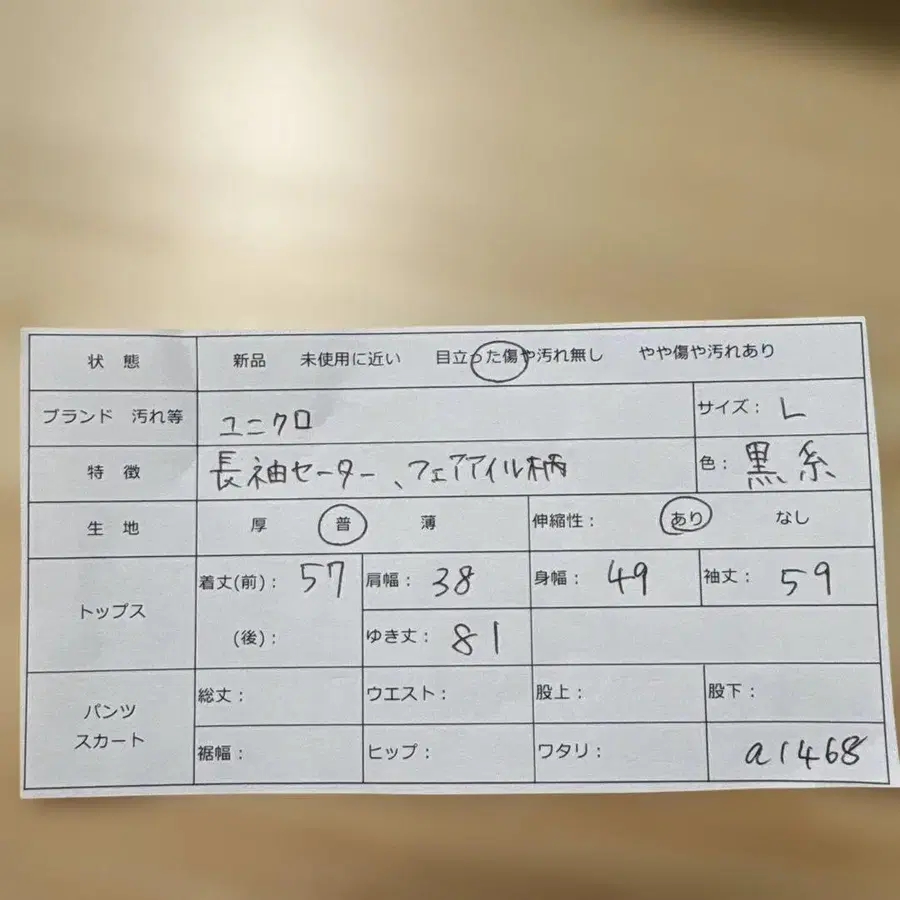 状 態 新品 未使用に近い 目立った傷や汚れ無し やや傷や汚れあり
ブランド 汚れ等 ユニクロ サイズ： L
特 徴 長袖セーター、フェアアイル柄 色： 黒系
生 地 厚 普 薄 伸縮性： あり なし
トップス 着丈(前)： 57 肩幅： 38 身幅： 49 袖丈： 59
(後)： ゆき丈： 81
パンツ スカート 総丈： ウエスト： 股上： 股下：
裾幅： ヒップ： ワタリ： a1468